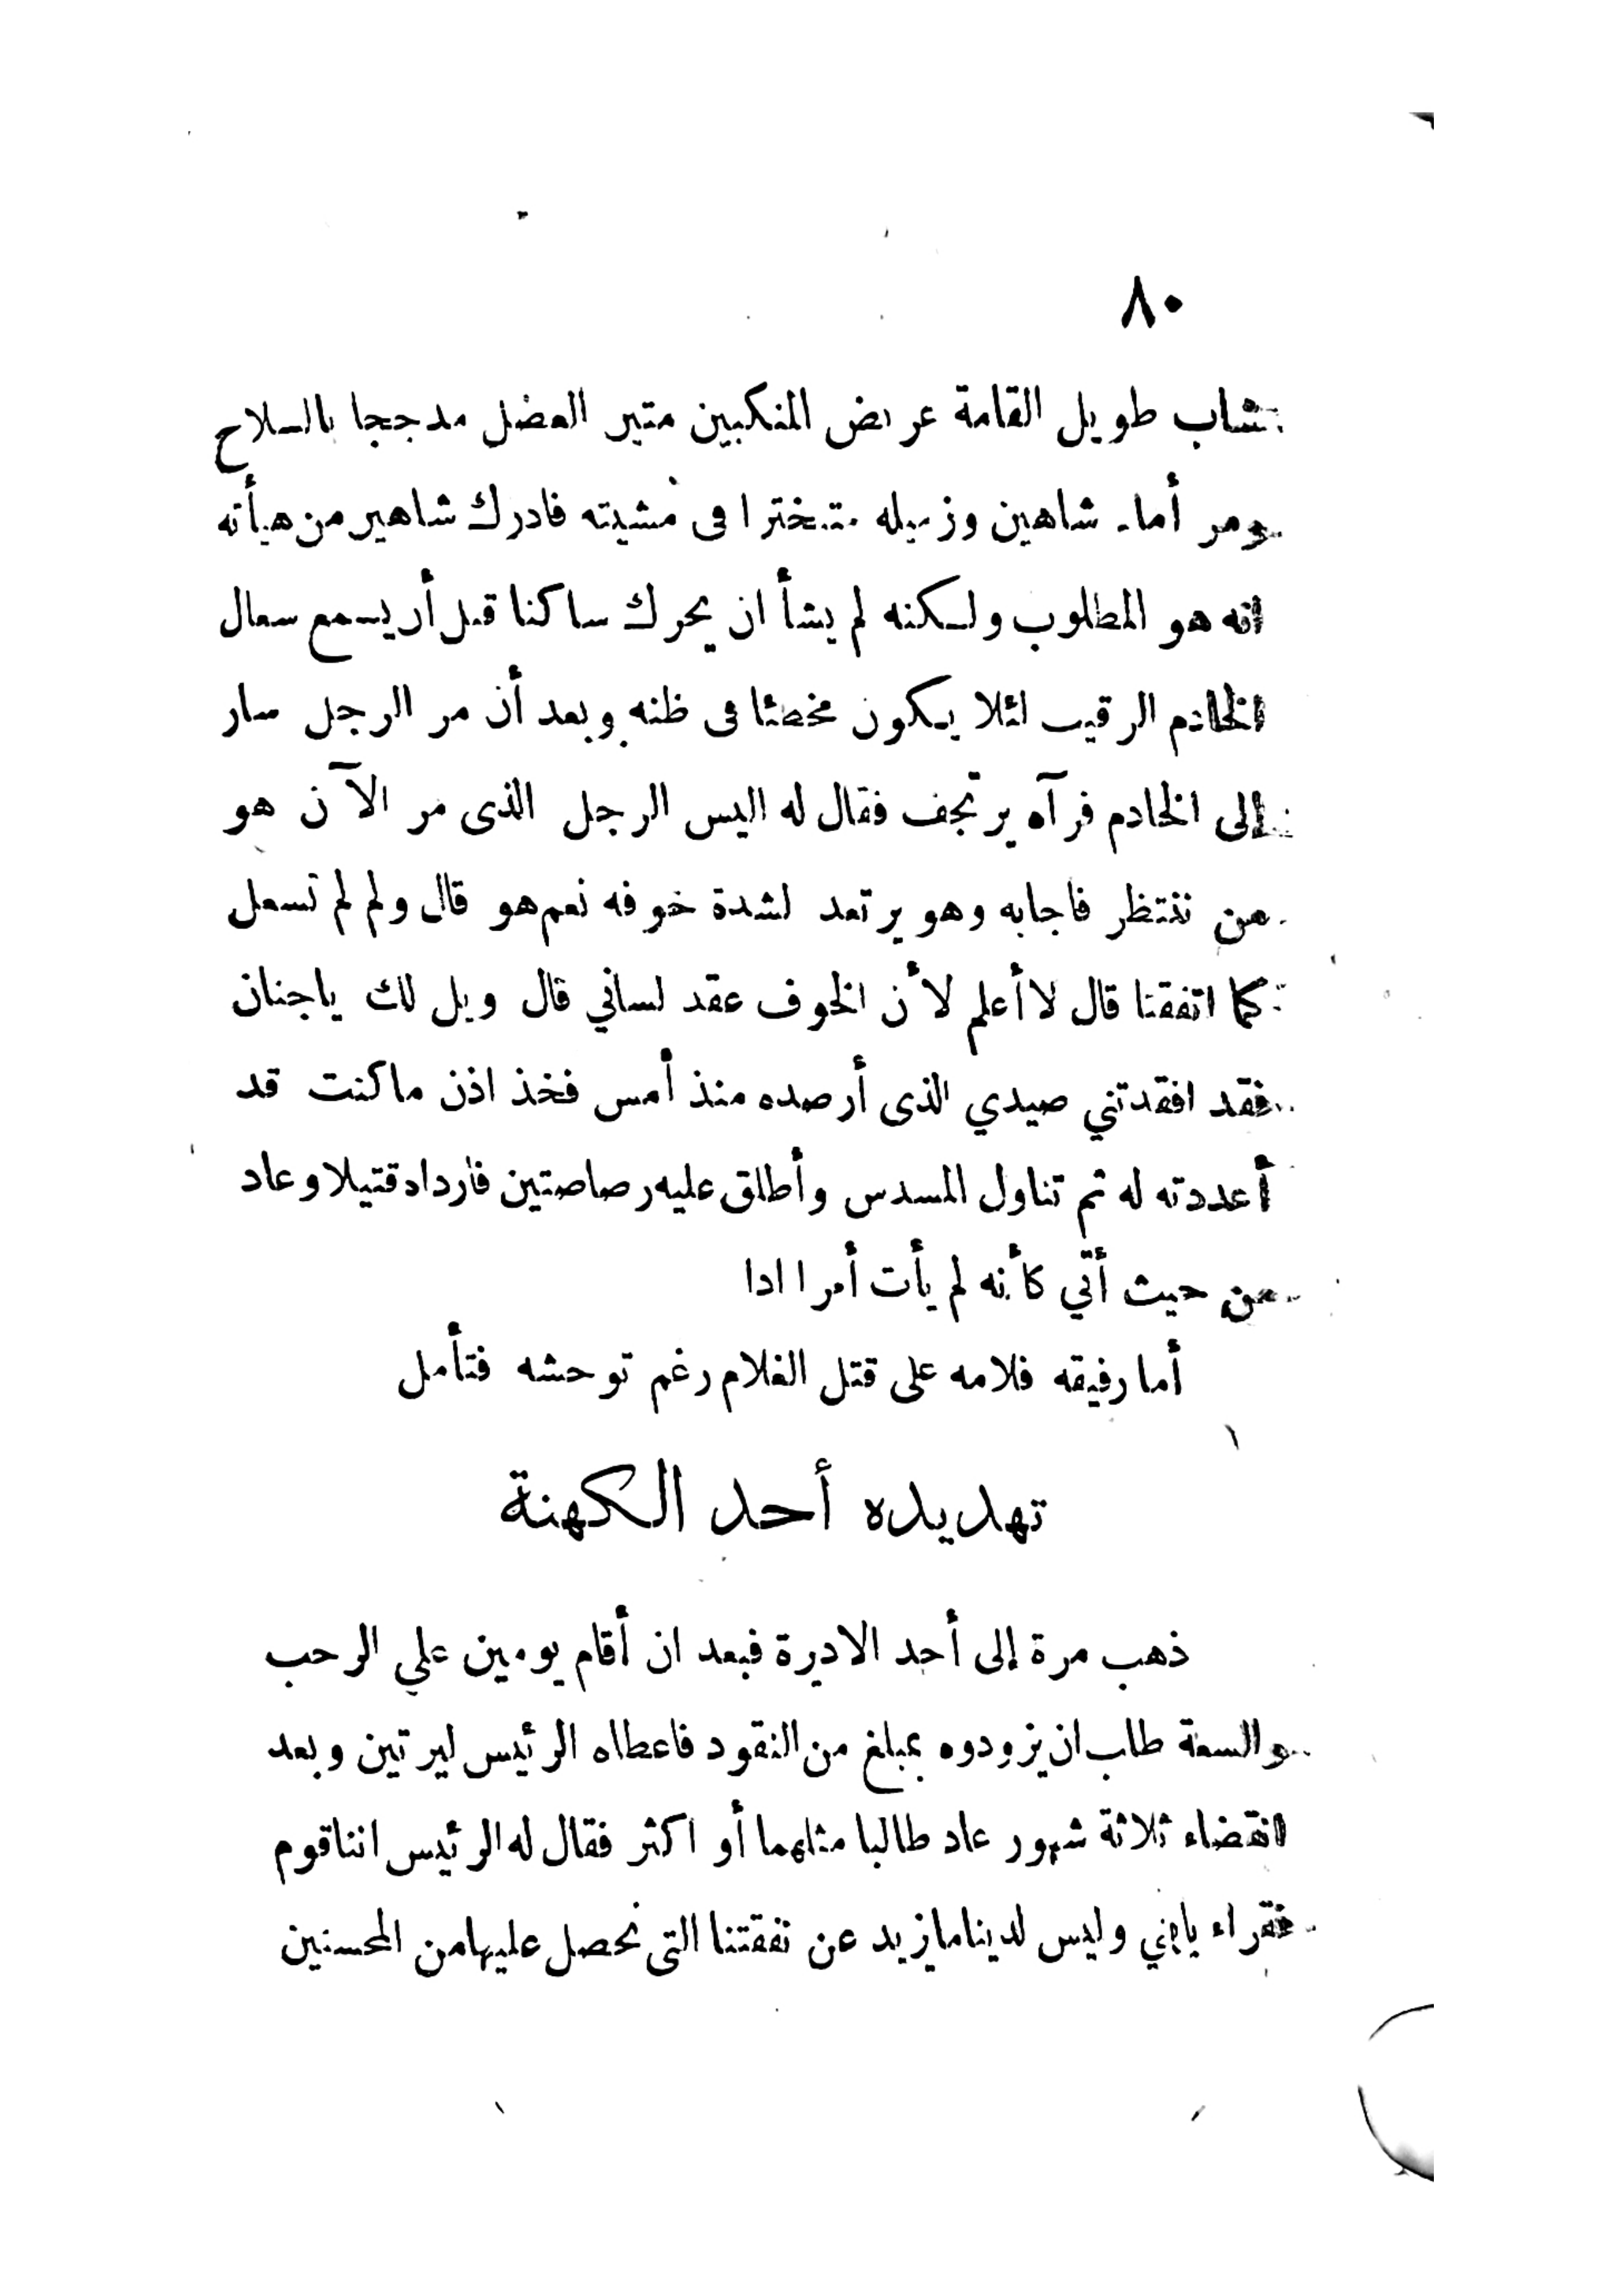 ٨٠
شاب طويل القامة عريض المنكبين متين العضل مدججا بالسلاح
ومر أمام شاهين وزميله متبخترا فى مشيته فادرك شاهين من هيأته
انه هو المطلوب ولكنه لم يشأ ان يحرك ساكنا قبل أن يسمع سعال
الخادم الرقيب لئلا يكون مخطئا فى ظنه وبعد أن مر الرجل سار
إلى الخادم فرآه يرتجف فقال له اليس الرجل الذى مر الآن هو
من ننتظر فاجابه وهو يرتعد لشدة خوفه نعم هو قال ولم لم تسعل
كما اتفقنا قال لا أعلم لأن الخوف عقد لساني قال ويل لك ياجنان
فقد افقدتني صيدي الذى أرصده منذ أمس فخذ اذن ما كنت قد
أعددته له ثم تناول المسدس وأطلق عليه رصاصتين فارداه قتيلا وعاد
من حيث أتي كأنه لم يأت أمرا ادا
أما رفيقه فلامه على قتل الغلام رغم توحشه فتأمل
تهديده أحد الكهنة
ذهب مرة إلى أحد الاديرة فبعد ان أقام يومين علي الرحب
والسعة طلب ان يزودوه بمبلغ من النقود فاعطاه الرئيس ليرتين وبعد
انقضاء ثلاثة شهور عاد طالبا مثلهما أو اكثر فقال له الرئيس اننا قوم
فقراء يابني وليس لدينا مايزيد عن نفقتنا التى نحصل عليها من المحسنين